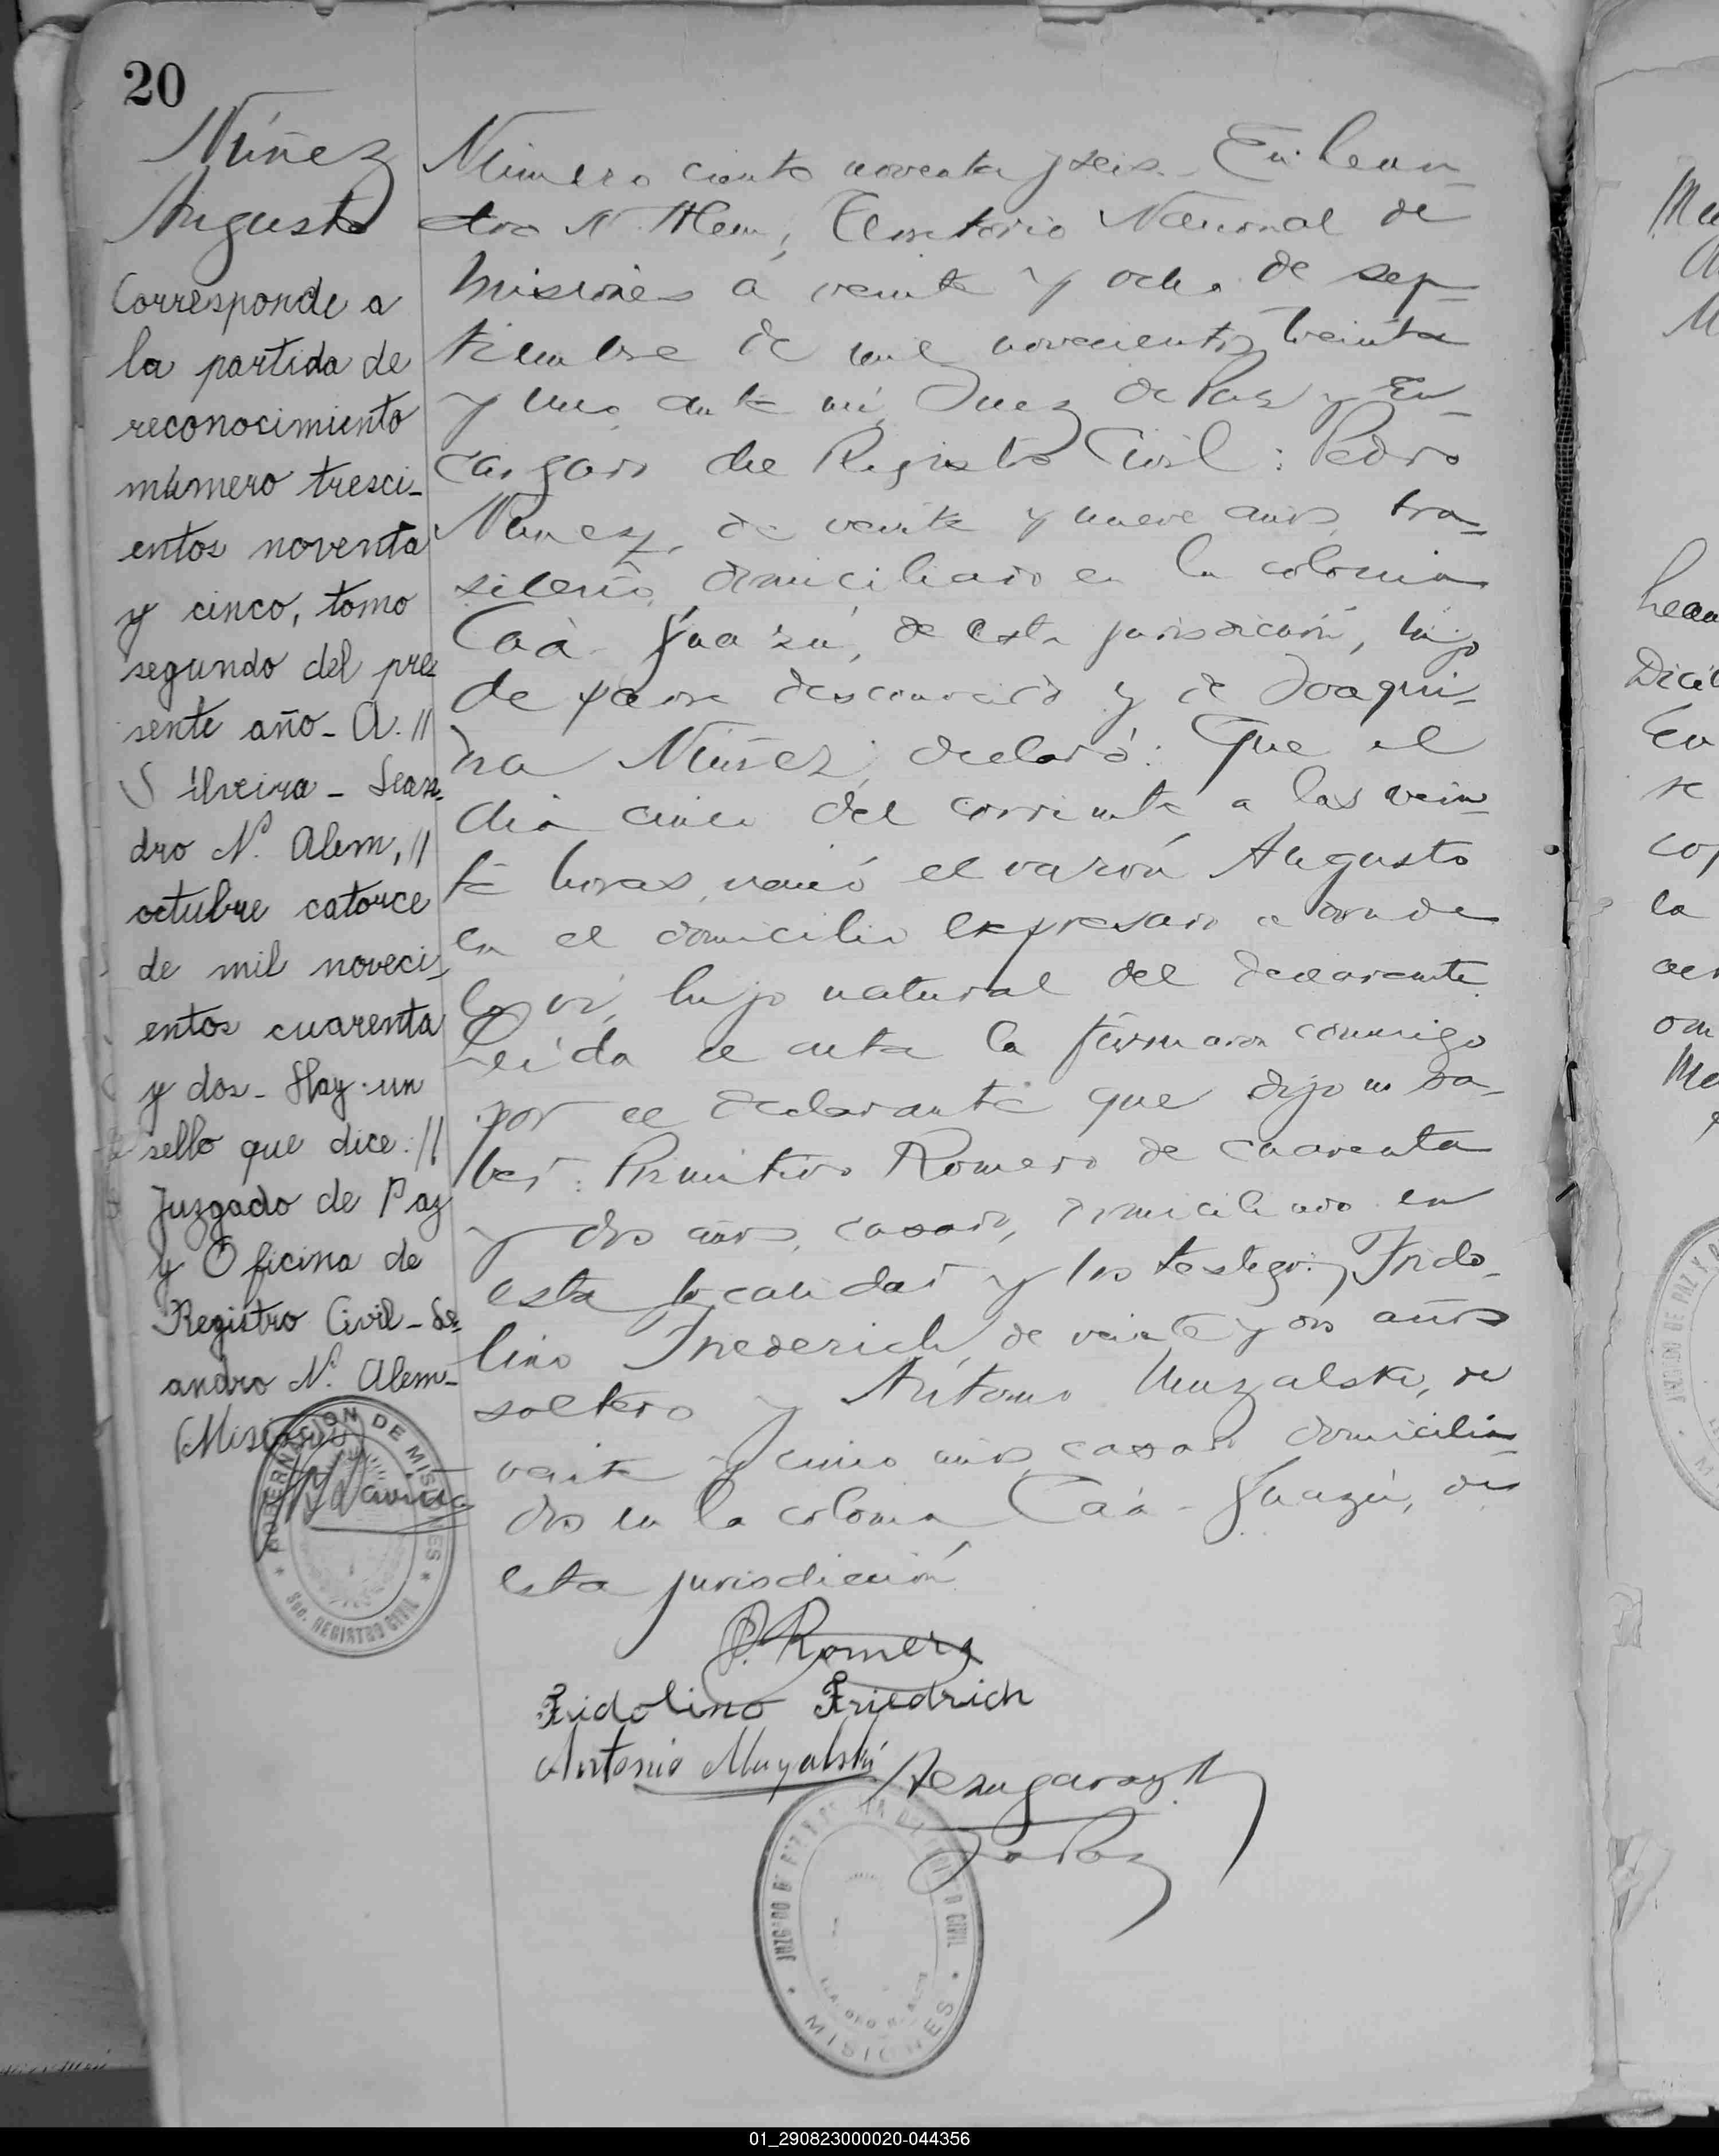 20
Núñez
Augusto
Corresponde a
la partida de
reconocimiento
número tresci-
entos noventa
y cinco, tomo
segundo del pre-
sente año - A. //
Silveira - Lean-
dro N. Alem, //
octubre catorce
de mil noveci-
entos cuarenta
y dos - Hay un
sello que dice: //
Juzgado de Paz
y Oficina de
Registro Civil - Le-
andro N. Alem -
(Misiones)
GOBERNACION DE MISIONES
Sec. REGISTRO CIVIL
Número ciento noventa y seis. - En Lean-
dro N. Alem, Territorio Nacional de
Misiones á veinte y ocho de sep-
tiembre de mil novecientos treinta
y uno, ante mí, Juez de Paz y En-
cargado del Registro Civil: Pedro
Nunez, de veinte y nueve años, bra-
sileño, domiciliado en la colonia
Caá-Guazú, de esta jurisdicción, hijo
de padre desconocido y de Joaqui-
na Núñez, declaró: Que el
día cinco del corriente a las vein-
te horas, nació el varón Augusto
en el domicilio expresado a donde
lo ví, hijo natural del declarante.
Leída el acta la firmaron conmigo
por el declarante que dijo no sa-
ber: Primitivo Romero de cuarenta
y dos años, casado, domiciliado en
esta localidad y los testigos, Frido-
lino Friederich, de veinte y dos años
soltero y Antonio Muzalski, de
veinte y cinco años, casado domicilia-
dos en la colonia Caá-Guazú, de
esta jurisdicción
P. Romero
Fridolino Friedrich
Antonio Muzalski
J. de Paz
JUZGADO DE PAZ Y REGISTRO CIVIL
LEANDRO N. ALEM
MISIONES
Mu
Lean
se
cop
la
01_290823000020-044356